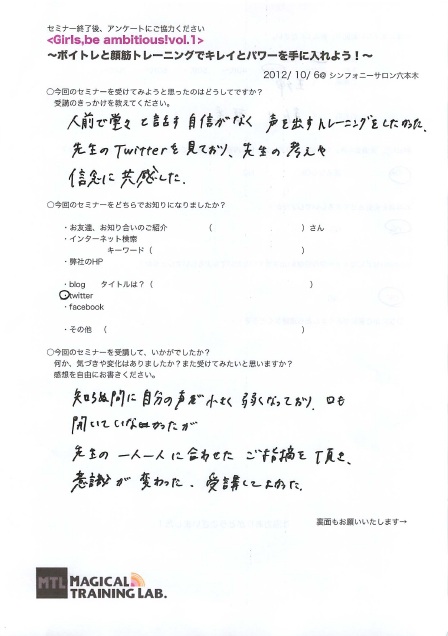 セミナー終了後、アンケートにご協力ください
<Girls,be ambitious!vol.1>
～ボイトレと顔筋トレーニングでキレイとパワーを手に入れよう！～
2012/ 10/ 6@ シンフォニーサロン六本木
○今回のセミナーを受けてみようと思ったのはどうしてですか？
受講のきっかけを教えてください。
人前で堂々と話す自信がなく 声を出すトレーニングをしたかった、
先生のTwitterを見ており、先生の考えや
信念に共感した.
○今回のセミナーをどちらでお知りになりましたか？
・お友達、お知り合いのご紹介 （ ）さん
・インターネット検索
キーワード（ ）
・弊社のHP
・blog タイトルは？（ ）
・twitter
・facebook
・その他 （ ）
○今回のセミナーを受講して、いかがでしたか？
何か、気づきや変化はありましたか？また受けてみたいと思いますか？
感想を自由にお書きください。
知らぬ間に自分の声が小さく弱くなっており、口も
開いていなかったが
先生の一人一人に合わせた ご指摘を頂き、
意識が変わった. 受講してよかった.
裏面もお願いいたします→
MTL MAGICAL
TRAINING LAB.